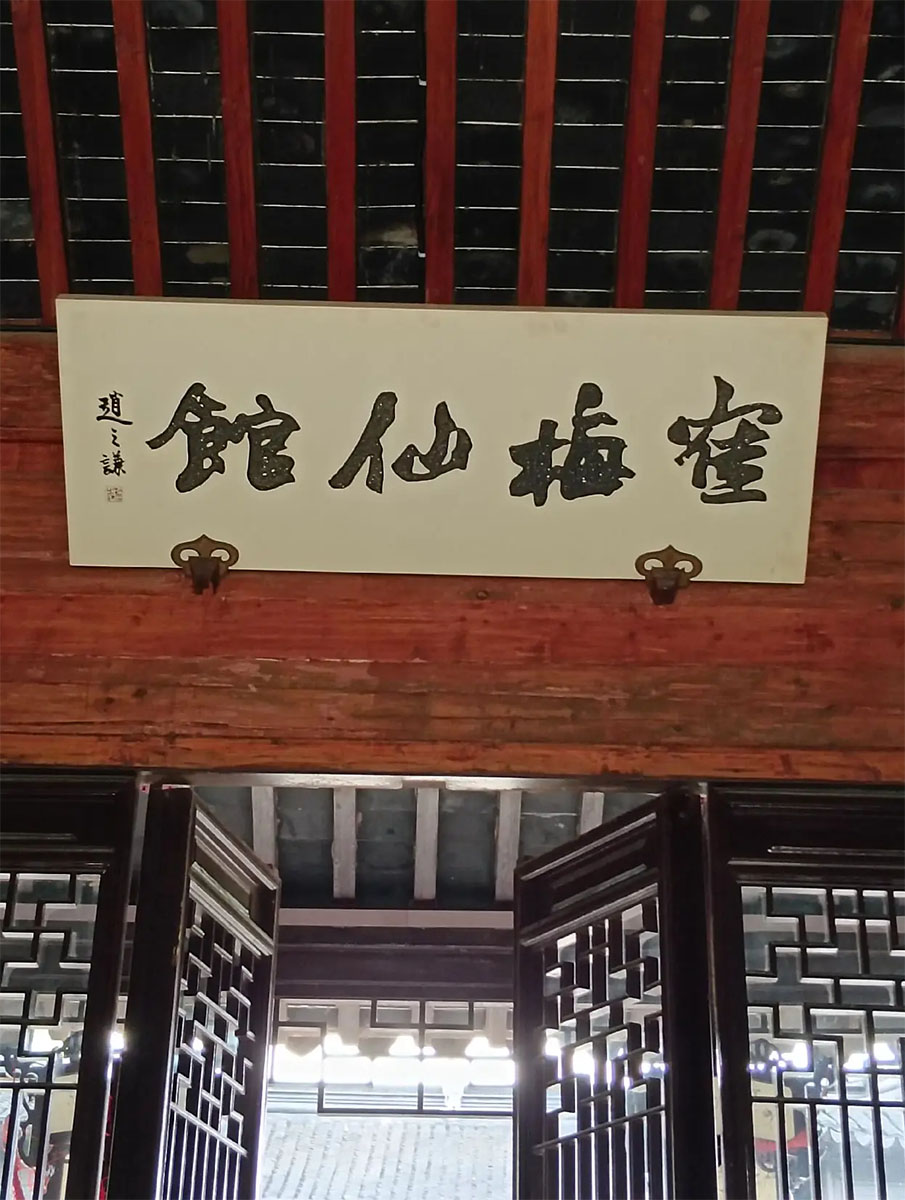 寉梅仙館
趙之謙